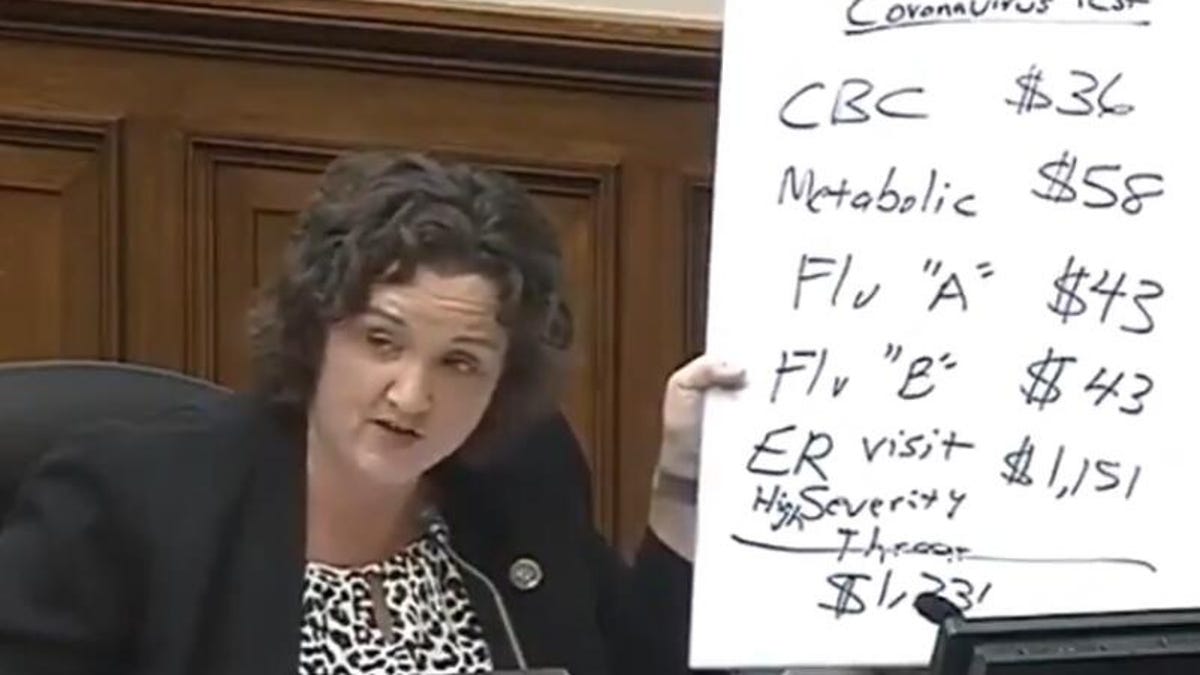 Coronavirus Test
CBC $36
Metabolic $58
Flu "A" $43
Flu "B" $43
ER visit $1,151
High Severity
Threat
$1,331